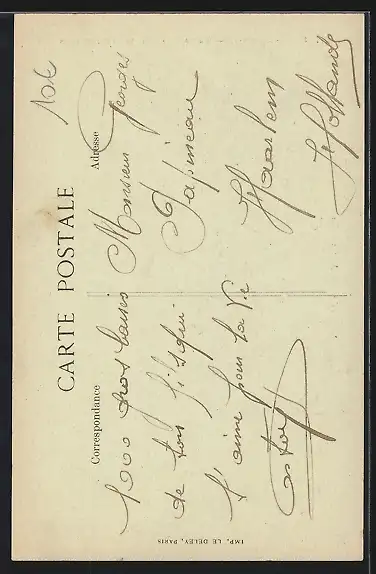 10€
CARTE POSTALE
Correspondance
Adresse
1000 gros baisers
de ton qui
t'aime pour la vie
Monsieur Georges
Papineau
Haarlem
Hollande
IMP. LE DELEY, PARIS